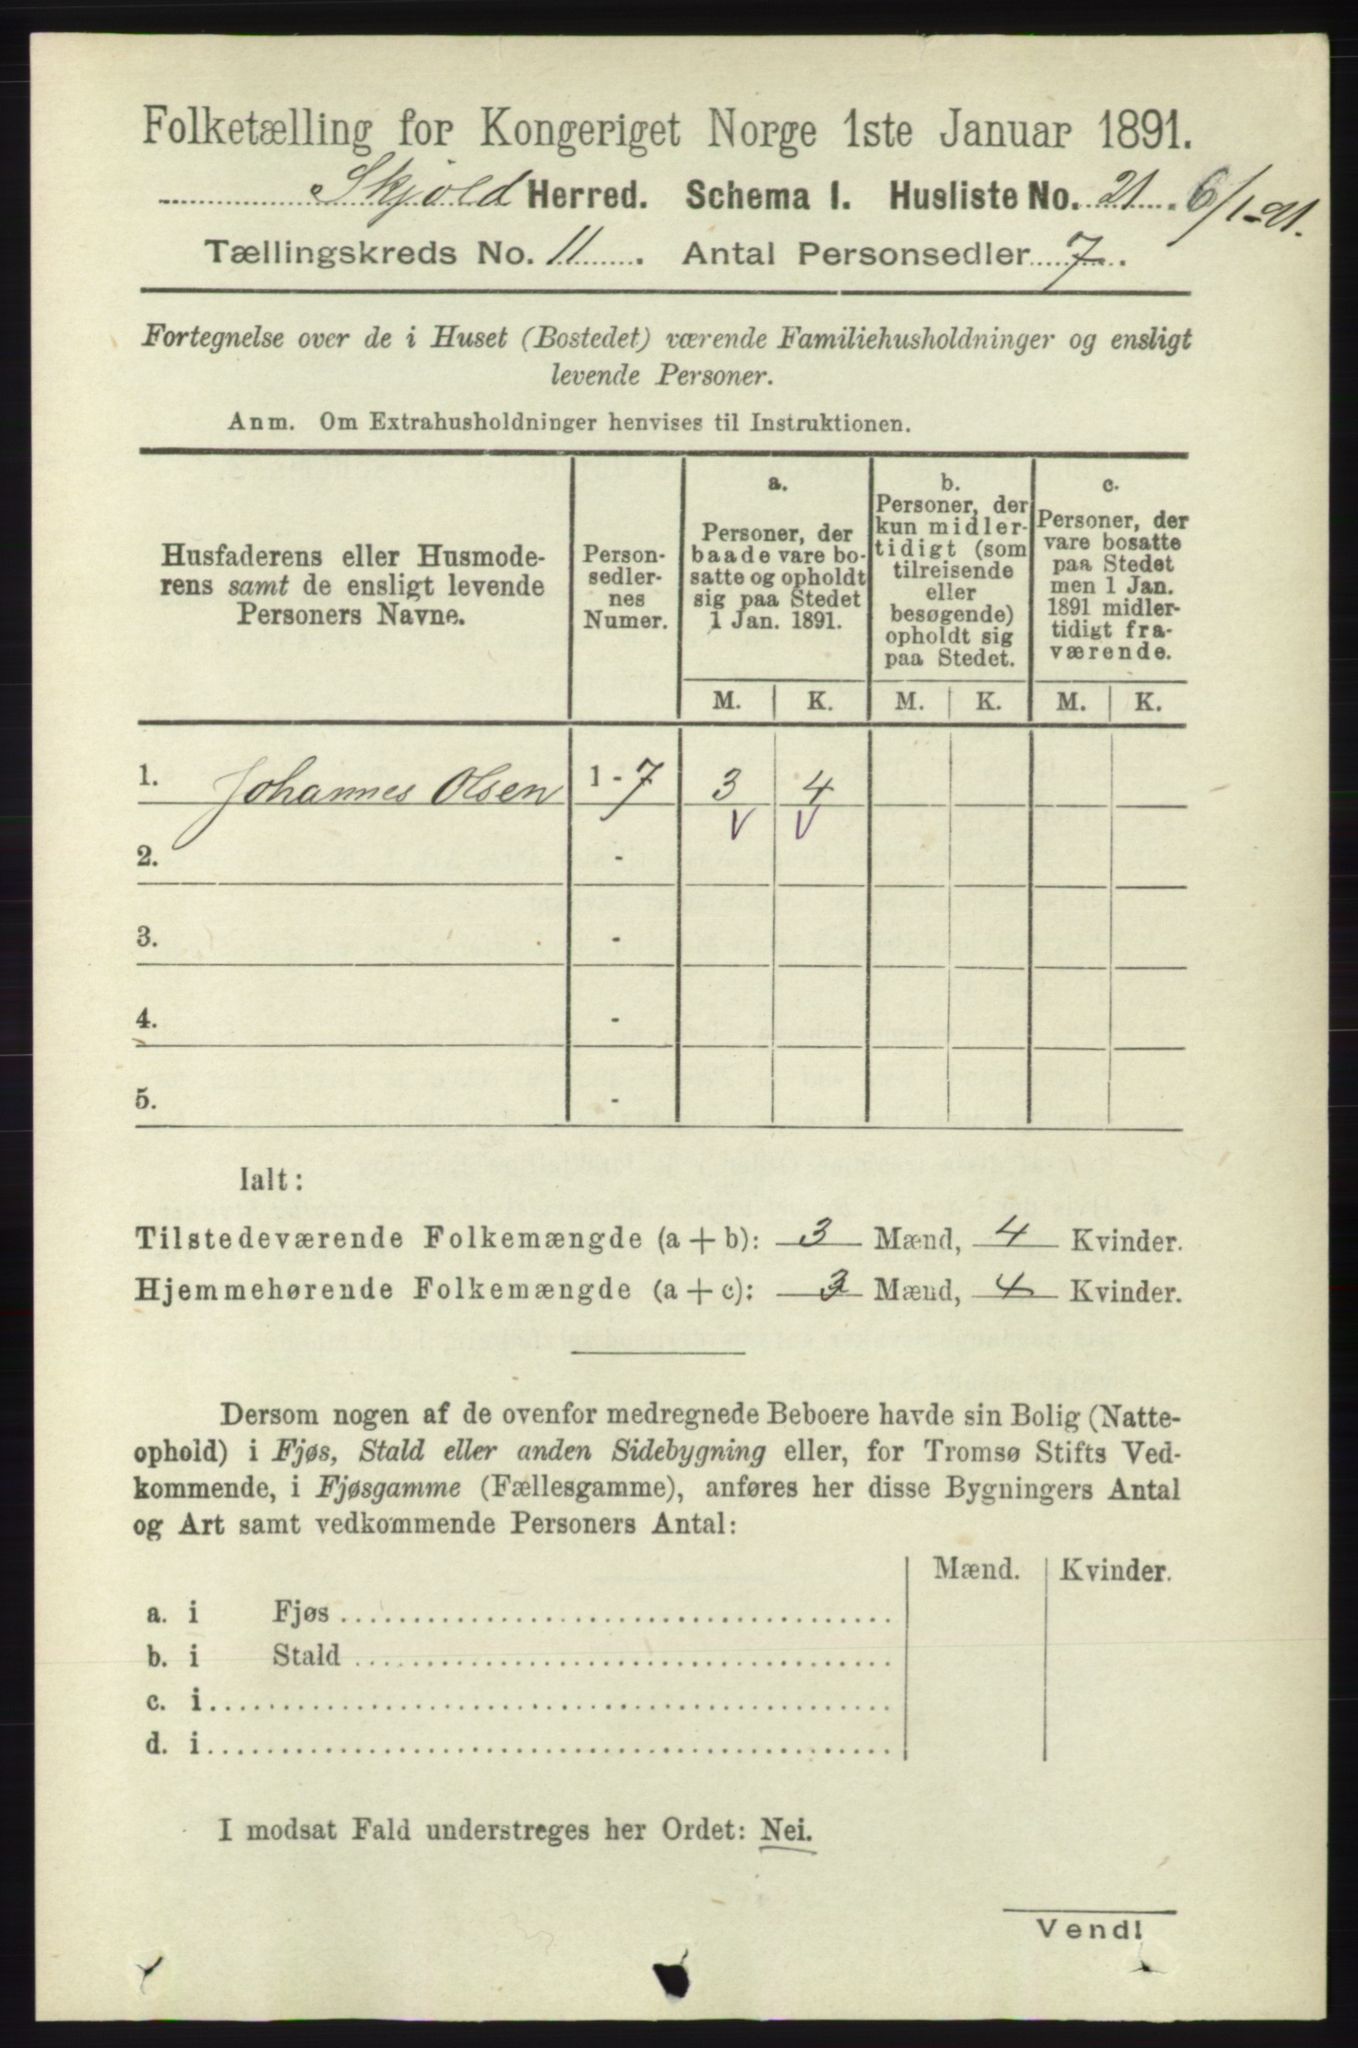 Folketælling for Kongeriget Norge 1ste Januar 1891.
Skjold Herred. Schema I. Husliste No. 21. 6/1-91.
Tællingskreds No. 11. Antal Personsedler 7.
Fortegnelse over de i Huset (Bostedet) værende Familiehusholdninger og ensligt
levende Personer.
Anm. Om Extrahusholdninger henvises til Instruktionen.
Husfaderens eller Husmode-
rens samt de ensligt levende
Personers Navne.
Person-
sedler-
nes
Numer.
a.
Personer, der
baade vare bo-
satte og opholdt
sig paa Stedet
1 Jan. 1891.
b.
Personer, der
kun midler-
tidigt (som
tilreisende
eller
besøgende)
opholdt sig
paa Stedet.
c.
Personer, der
vare bosatte
paa Stedet
men 1 Jan.
1891 midler-
tidigt fra-
værende.
M. K. M. K. M. K.
1. Johannes Olsen 1 - 7 3 4
V V
2. -
3. -
4. -
5. -
Ialt:
Tilstedeværende Folkemængde (a + b): 3 Mænd, 4 Kvinder.
Hjemmehørende Folkemængde (a + c): 3 Mænd, 4 Kvinder.
Dersom nogen af de ovenfor medregnede Beboere havde sin Bolig (Natte-
ophold) i Fjøs, Stald eller anden Sidebygning eller, for Tromsø Stifts Ved-
kommende, i Fjøsgamme (Fællesgamme), anføres her disse Bygningers Antal
og Art samt vedkommende Personers Antal:
Mænd. Kvinder.
a. i Fjøs
b. i Stald
c. i
d. i
I modsat Fald understreges her Ordet: Nei.
Vend!